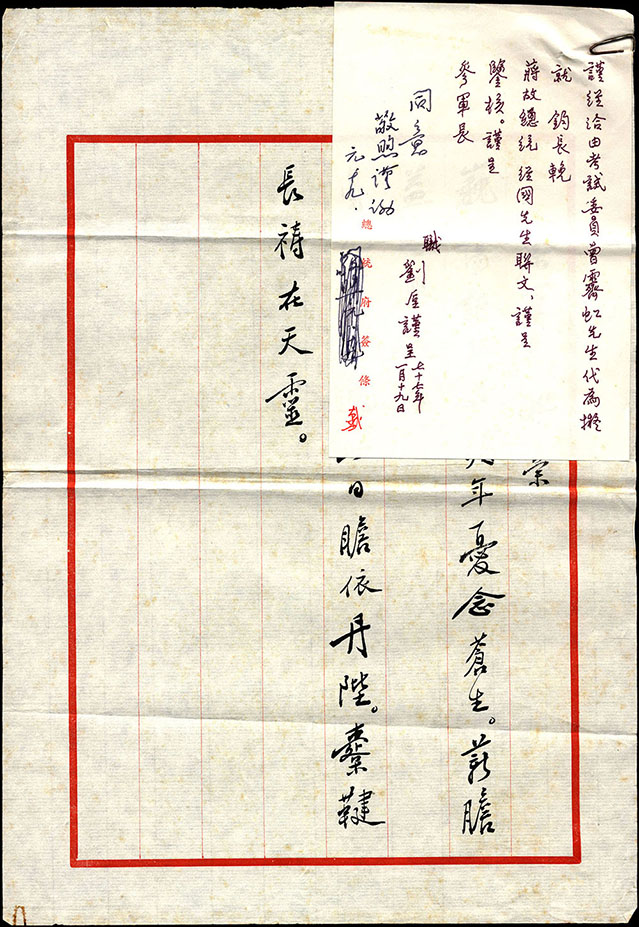 謹經洽由考試委員曾霽虹先生代為擬
就 鈞長輓
蔣故總統 經國先生聯文、謹呈
鑒核。謹呈
參軍長
職劉
謹呈
七十七年
一月十九日
同意
敬煦
元九.
總統府簽條
榮
年憂念蒼生。薪膽
日瞻依丹陛。櫜鞬
長禱在天靈。